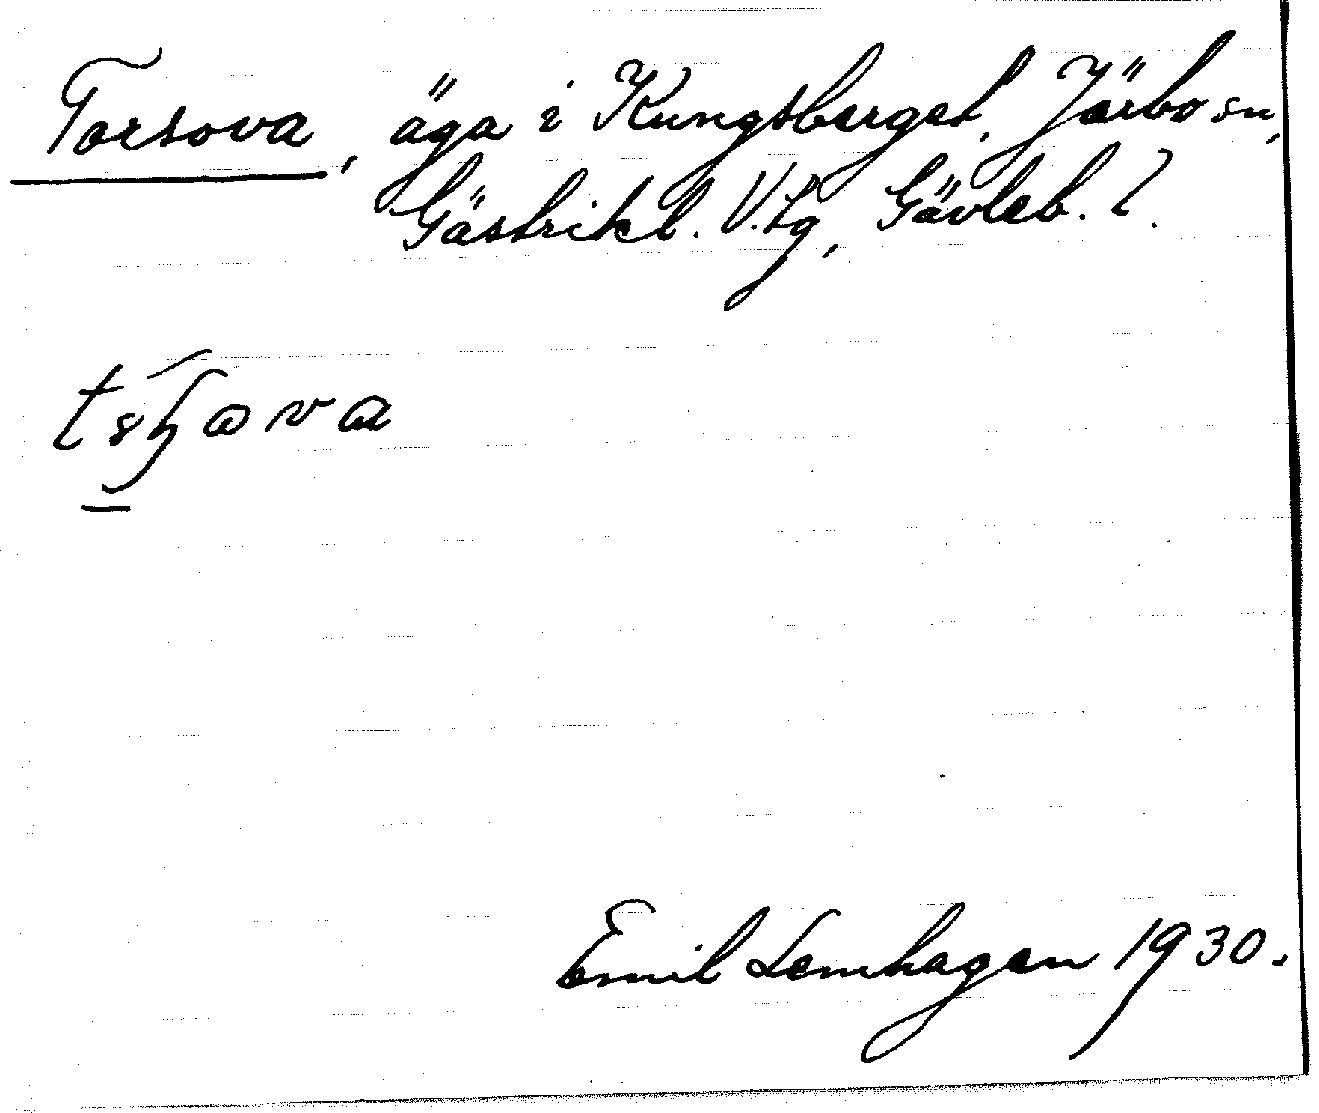 Torsova, äga i Kungsberget, Järbo sn,
Gästrikl. V. tg, Gävleb. l.
Emil Lemhagen 1930.